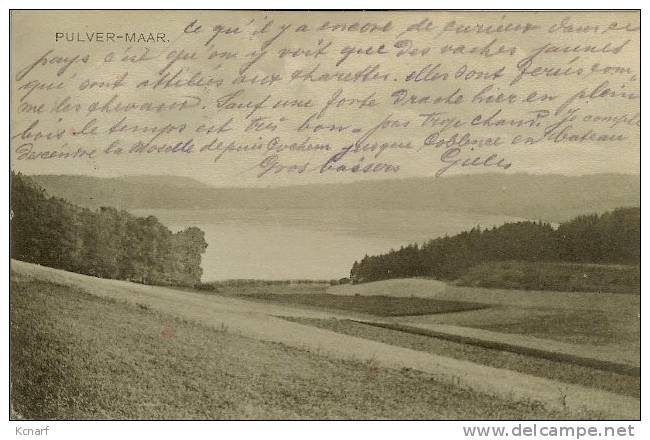 PULVER-MAAR.
Ce qu'il y a encore de curieux dans ce
pays c'est qu'on y voit que des vaches jaunes
qui sont attelées aux charettes. elles sont ferrés com-
me des chevaux. Sauf une forte Drache hier en plein
bois le temps est très bon - pas trop chaud. Je compte
descendre la Moselle depuis Cochem jusque Coblence en bateau
Gros baisers Gielis
Kcnarf
www.delcampe.net